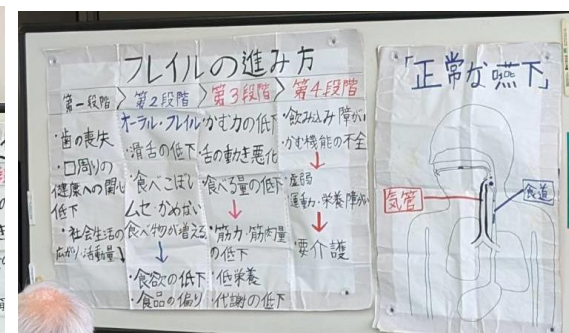 フレイルの進み方
第一段階
・歯の喪失
・口周りの
健康への関心
低下
・社会生活の
広がり・活動量↓
第2段階
オーラル・フレイル
・滑舌の低下
・食べこぼし
ムセ・かめない
食べ物が増える
↓
・食欲の低下
・食品の偏り
第3段階
かむ力の低下
舌の動き悪化
食べる量の低下
↓
・筋力・筋肉量
の低下
・低栄養
・代謝の低下
第4段階
・飲み込み障がい
かむ機能の不全
↓
虚弱
運動・栄養障がい
↓
・要介護
「正常な嚥下」
気管
食道